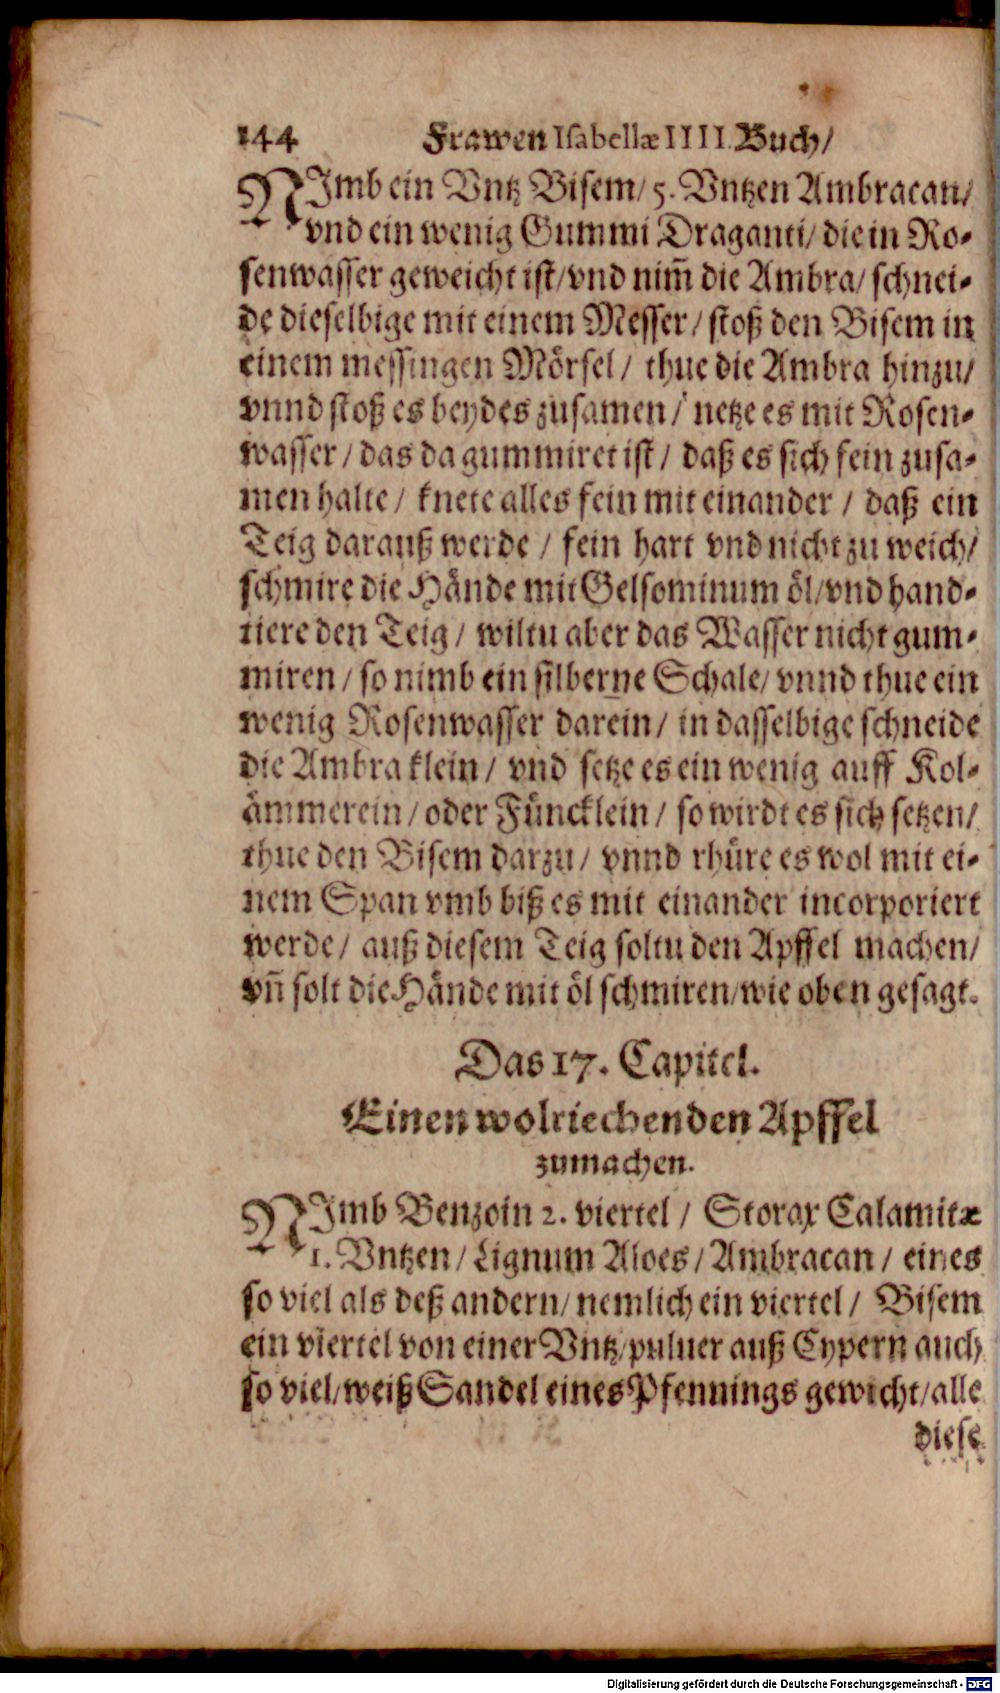 144 Frawen Isabellæ IIII. Buch/
NImb ein Vntz Bisem/ 5. Vntzen Ambracan/
vnd ein wenig Gummi Draganti/ die in Ro-
senwasser geweicht ist/ vnd nim̃ die Ambra/ schnei-
de dieselbige mit einem Messer/ stoß den Bisem in
einem messingen Mörsel/ thue die Ambra hinzu/
vnnd stoß es beydes zusamen/ netze es mit Rosen-
wasser/ das da gummiret ist/ daß es sich fein zusa-
men halte/ knete alles fein mit einander/ daß ein
Teig darauß werde/ fein hart vnd nicht zu weich/
schmire die Hände mit Gelsominum öl/ vnd hand-
tiere den Teig/ wiltu aber das Wasser nicht gum-
miren/ so nimb ein silberne Schale/ vnnd thue ein
wenig Rosenwasser darein/ in dasselbige schneide
die Ambra klein/ vnd setze es ein wenig auff Kol-
ämmerein/ oder Füncklein/ so wirdt es sich setzen/
thue den Bisem darzu/ vnnd rhüre es wol mit ei-
nem Span vmb biß es mit einander incorporiert
werde/ auß diesem Teig soltu den Apffel machen/
vñ solt die Hände mit öl schmiren/ wie oben gesagt.
Das 17. Capitel.
Einen wolriechenden Apffel
zumachen.
NImb Benzoin 2. viertel/ Storax Calamitæ
1. Vntzen/ Lignum Aloes/ Ambracan/ eines
so viel als deß andern/ nemlich ein viertel/ Bisem
ein viertel von einer Vntz/ puluer auß Cypern auch
so viel/ weiß Sandel eines Pfennings gewicht/ alle
diese
Digitalisierung gefördert durch die Deutsche Forschungsgemeinschaft - DFG